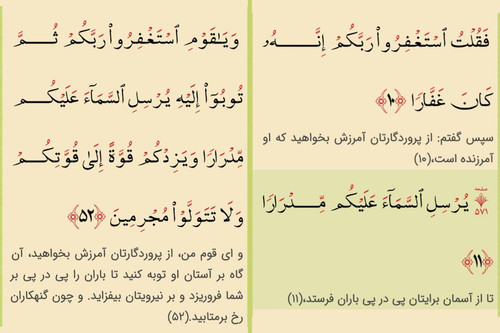 فَقُلْتُ ٱسْتَغْفِرُواْ رَبَّكُمْ إِنَّهُۥ
كَانَ غَفَّارٗا ﴿۱۰﴾
سپس گفتم: از پروردگارتان آمرزش بخواهید که او
آمرزنده است،(۱۰)
صفحه
۵۷۱
يُرْسِلِ ٱلسَّمَآءَ عَلَيْكُم مِّدْرَارٗا
﴿۱۱﴾
تا از آسمان برایتان پی در پی باران فرستد،(۱۱)
وَيَٰقَوْمِ ٱسْتَغْفِرُواْ رَبَّكُمْ ثُمَّ
تُوبُوٓاْ إِلَيْهِ يُرْسِلِ ٱلسَّمَآءَ عَلَيْكُم
مِّدْرَارٗا وَيَزِدْكُمْ قُوَّةً إِلَىٰ قُوَّتِكُمْ
وَلَا تَتَوَلَّوْاْ مُجْرِمِينَ ﴿۵۲﴾
و ای قوم من، از پروردگارتان آمرزش بخواهید، آن
گاه بر آستان او توبه کنید تا باران را پی در پی بر
شما فروریزد و بر نیرویتان بیفزاید. و چون گنهکاران
رخ برمتابید.(۵۲)